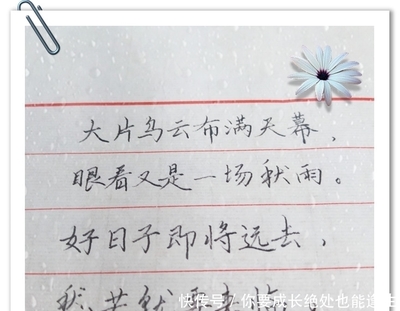 大片乌云布满天幕，
眼看又是一场秋雨。
好日子即将远去，
快传号／你要成长绝处也能逢生